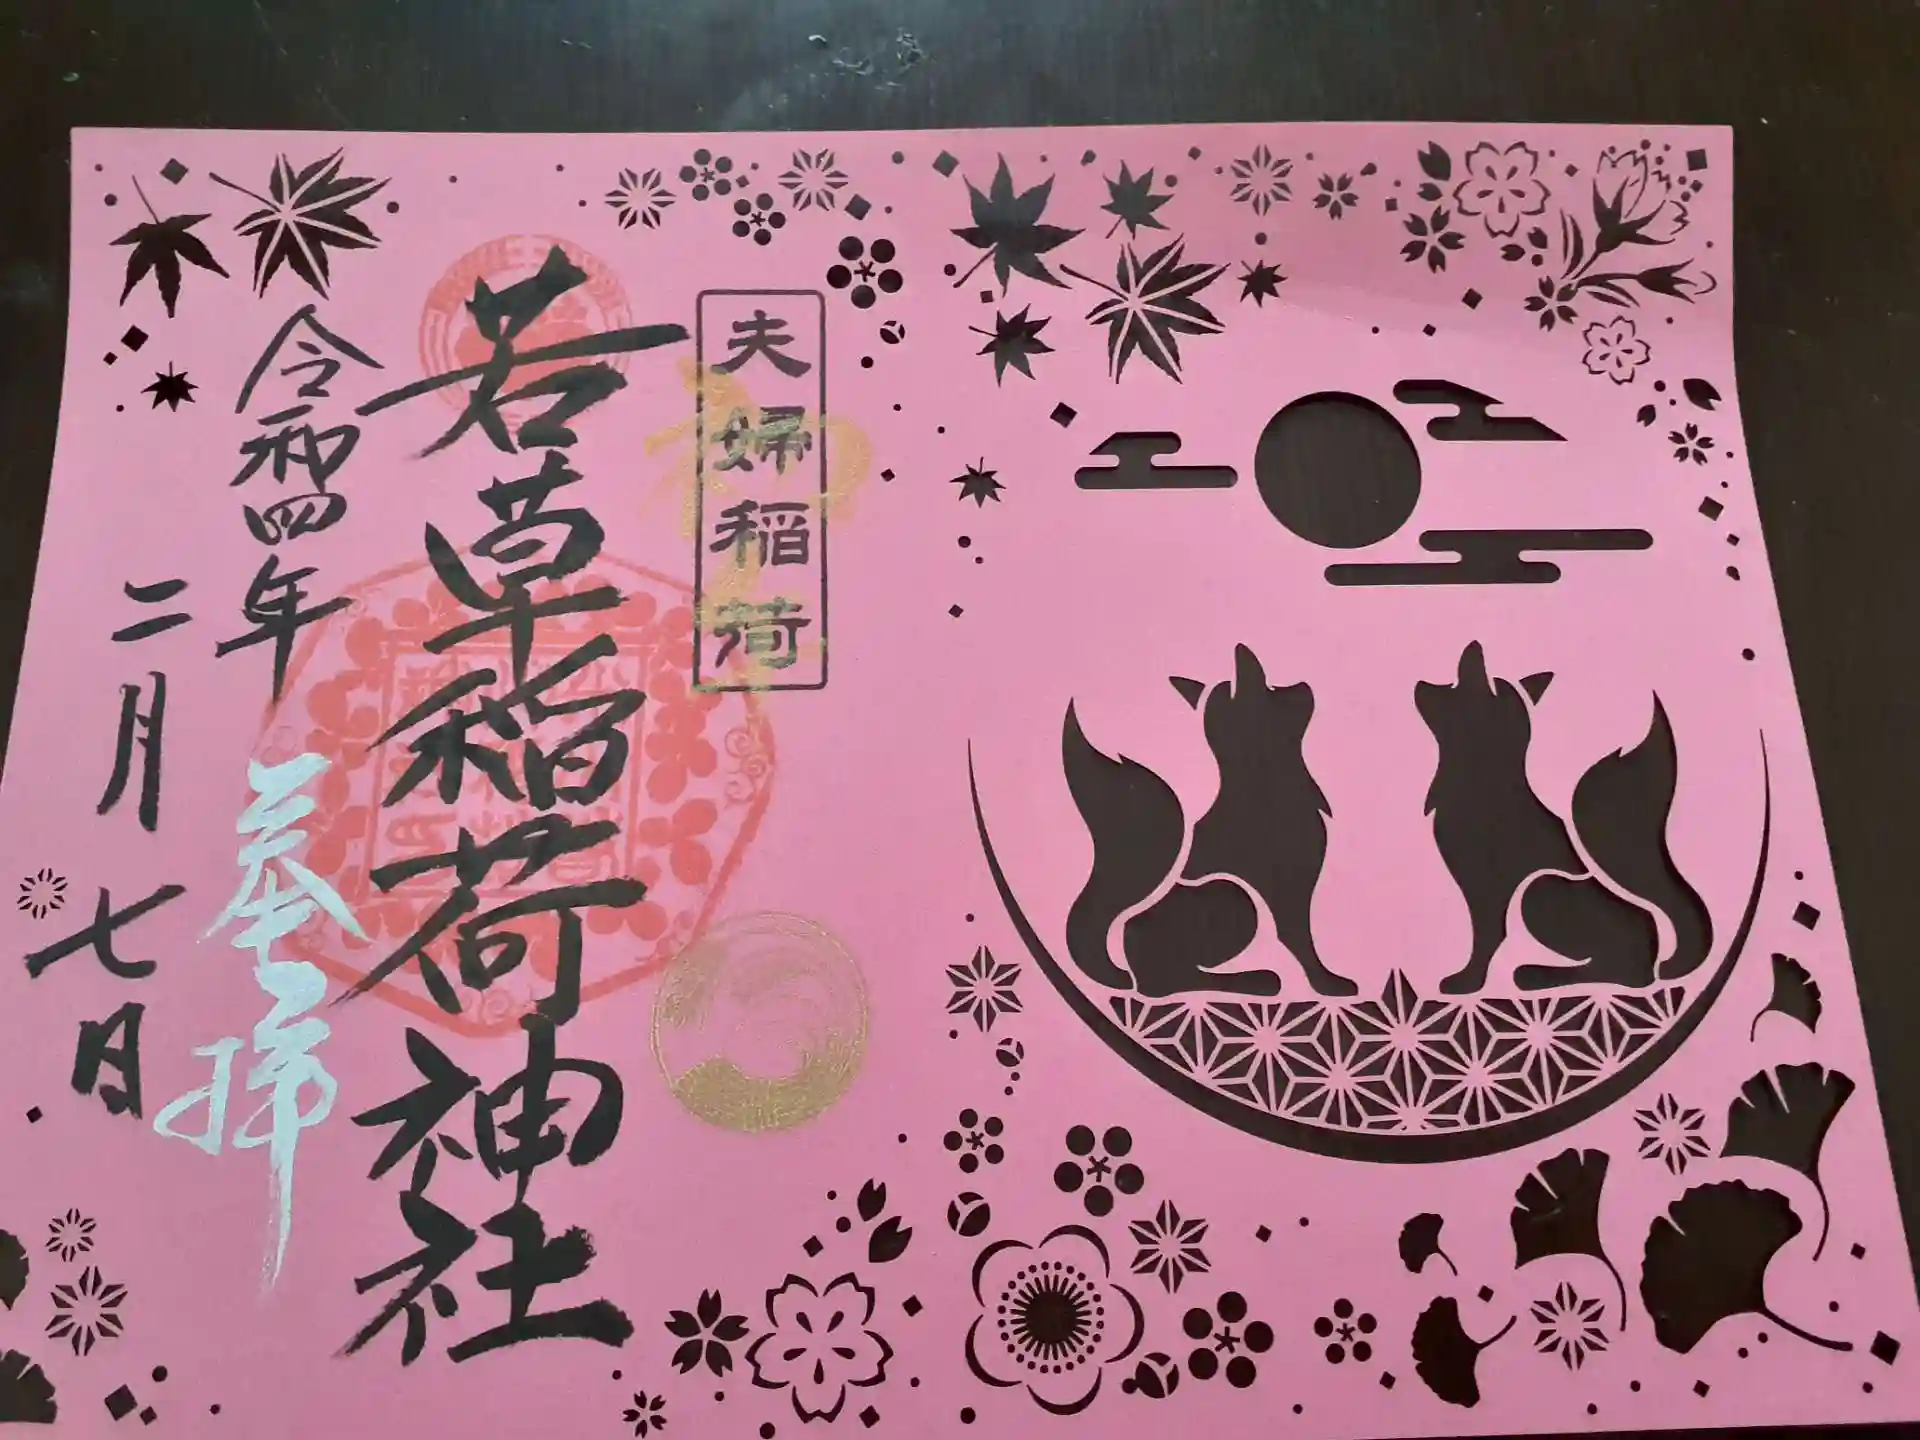 夫婦稲荷
若草稲荷神社
令和四年
奉拝
二月七日